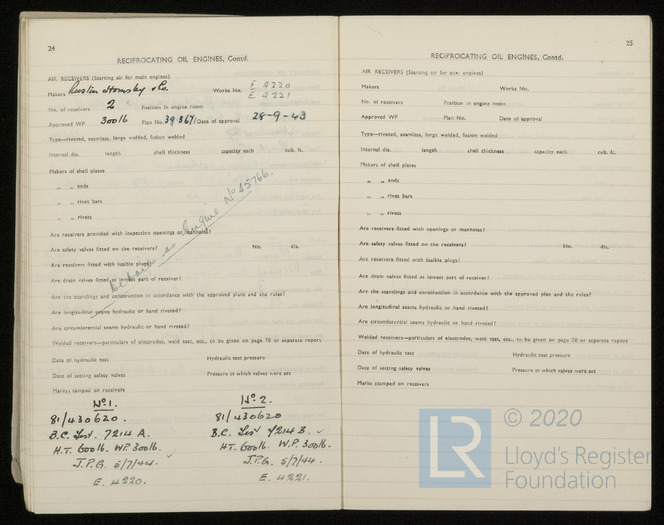 24
RECIPROCATING OIL ENGINES, Contd.
AIR RECEIVERS (Starting air for main engines)
Makers Ruston Hornsby & Co. Works No. E 4220
E 4221
No. of receivers 2 Position in engine room
Approved WP 300 lb Plan No. 39867 Date of approval 28-9-43
Type—riveted, seamless, forge welded, fusion welded
Internal dia. length shell thickness capacity each cub. ft.
Makers of shell plates
„ „ ends
„ „ rivet bars
„ „ rivets
Are receivers provided with inspection openings or manholes?
Are safety valves fitted on the receivers? No. dia.
Are receivers fitted with fusible plugs?
Are drain valves fitted at lowest part of receiver?
Are the scantlings and construction in accordance with the approved plans and the rules?
Are longitudinal seams hydraulic or hand riveted?
Are circumferential seams hydraulic or hand riveted?
Welded receivers—particulars of electrodes, weld test, etc., to be given on page 78 or separate report
Date of hydraulic test Hydraulic test pressure
Date of setting safety valves Pressure at which valves were set
Marks stamped on receivers
as Engine No
No 1. No 2.
81/430620. 81/430620
B.C. Test. 7214 A. B.C. Test 7214 B.
H.T. 600 lb. W.P. 300 lb. H.T. 600 lb. W.P. 300 lb.
J.P.G. 5/7/44. J.P.G. 5/7/44.
E. 4220. E. 4221.
25
RECIPROCATING OIL ENGINES, Contd.
AIR RECEIVERS (Starting air for aux. engines)
Makers Works No.
No. of receivers Position in engine room
Approved WP Plan No. Date of approval
Type—riveted, seamless, forge welded, fusion welded
Internal dia. length shell thickness capacity each cub. ft.
Makers of shell plates
„ „ ends
„ „ rivet bars
„ „ rivets
Are receivers fitted with openings or manholes?
Are safety valves fitted on the receivers? No. dia.
Are receivers fitted with fusible plugs?
Are drain valves fitted at lowest part of receiver?
Are the scantlings and construction in accordance with the approved plan and the rules?
Are longitudinal seams hydraulic or hand riveted?
Are circumferential seams hydraulic or hand riveted?
Welded receivers—particulars of electrodes, weld test, etc., to be given on page 78 or separate report
Date of hydraulic test Hydraulic test pressure
Date of setting safety valves Pressure at which valves were set
Marks stamped on receivers
LR © 2020
Lloyd's Register
Foundation